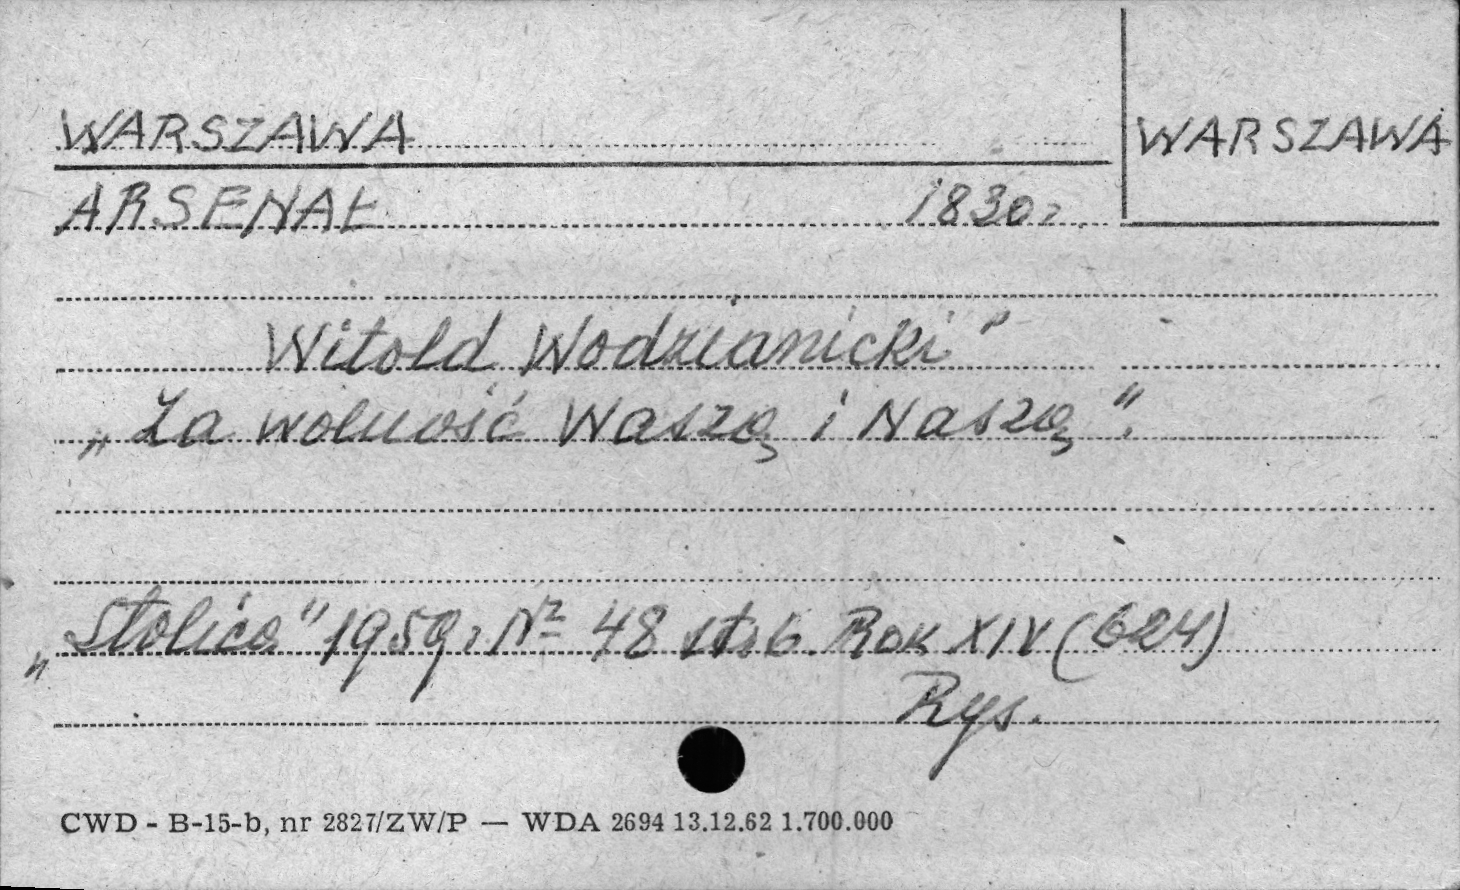 WARSZAWA
WARSZAWA
ARSENAŁ 1830 r.
Witold Wodzianicki"
„Za wolność Waszą i Naszą".
„Stolica" 1959 r. № 48 str. 6. Rok XIV (624)
Rys.
CWD - B-15-b, nr 2827/ZW/P — WDA 2694 13.12.62 1.700.000